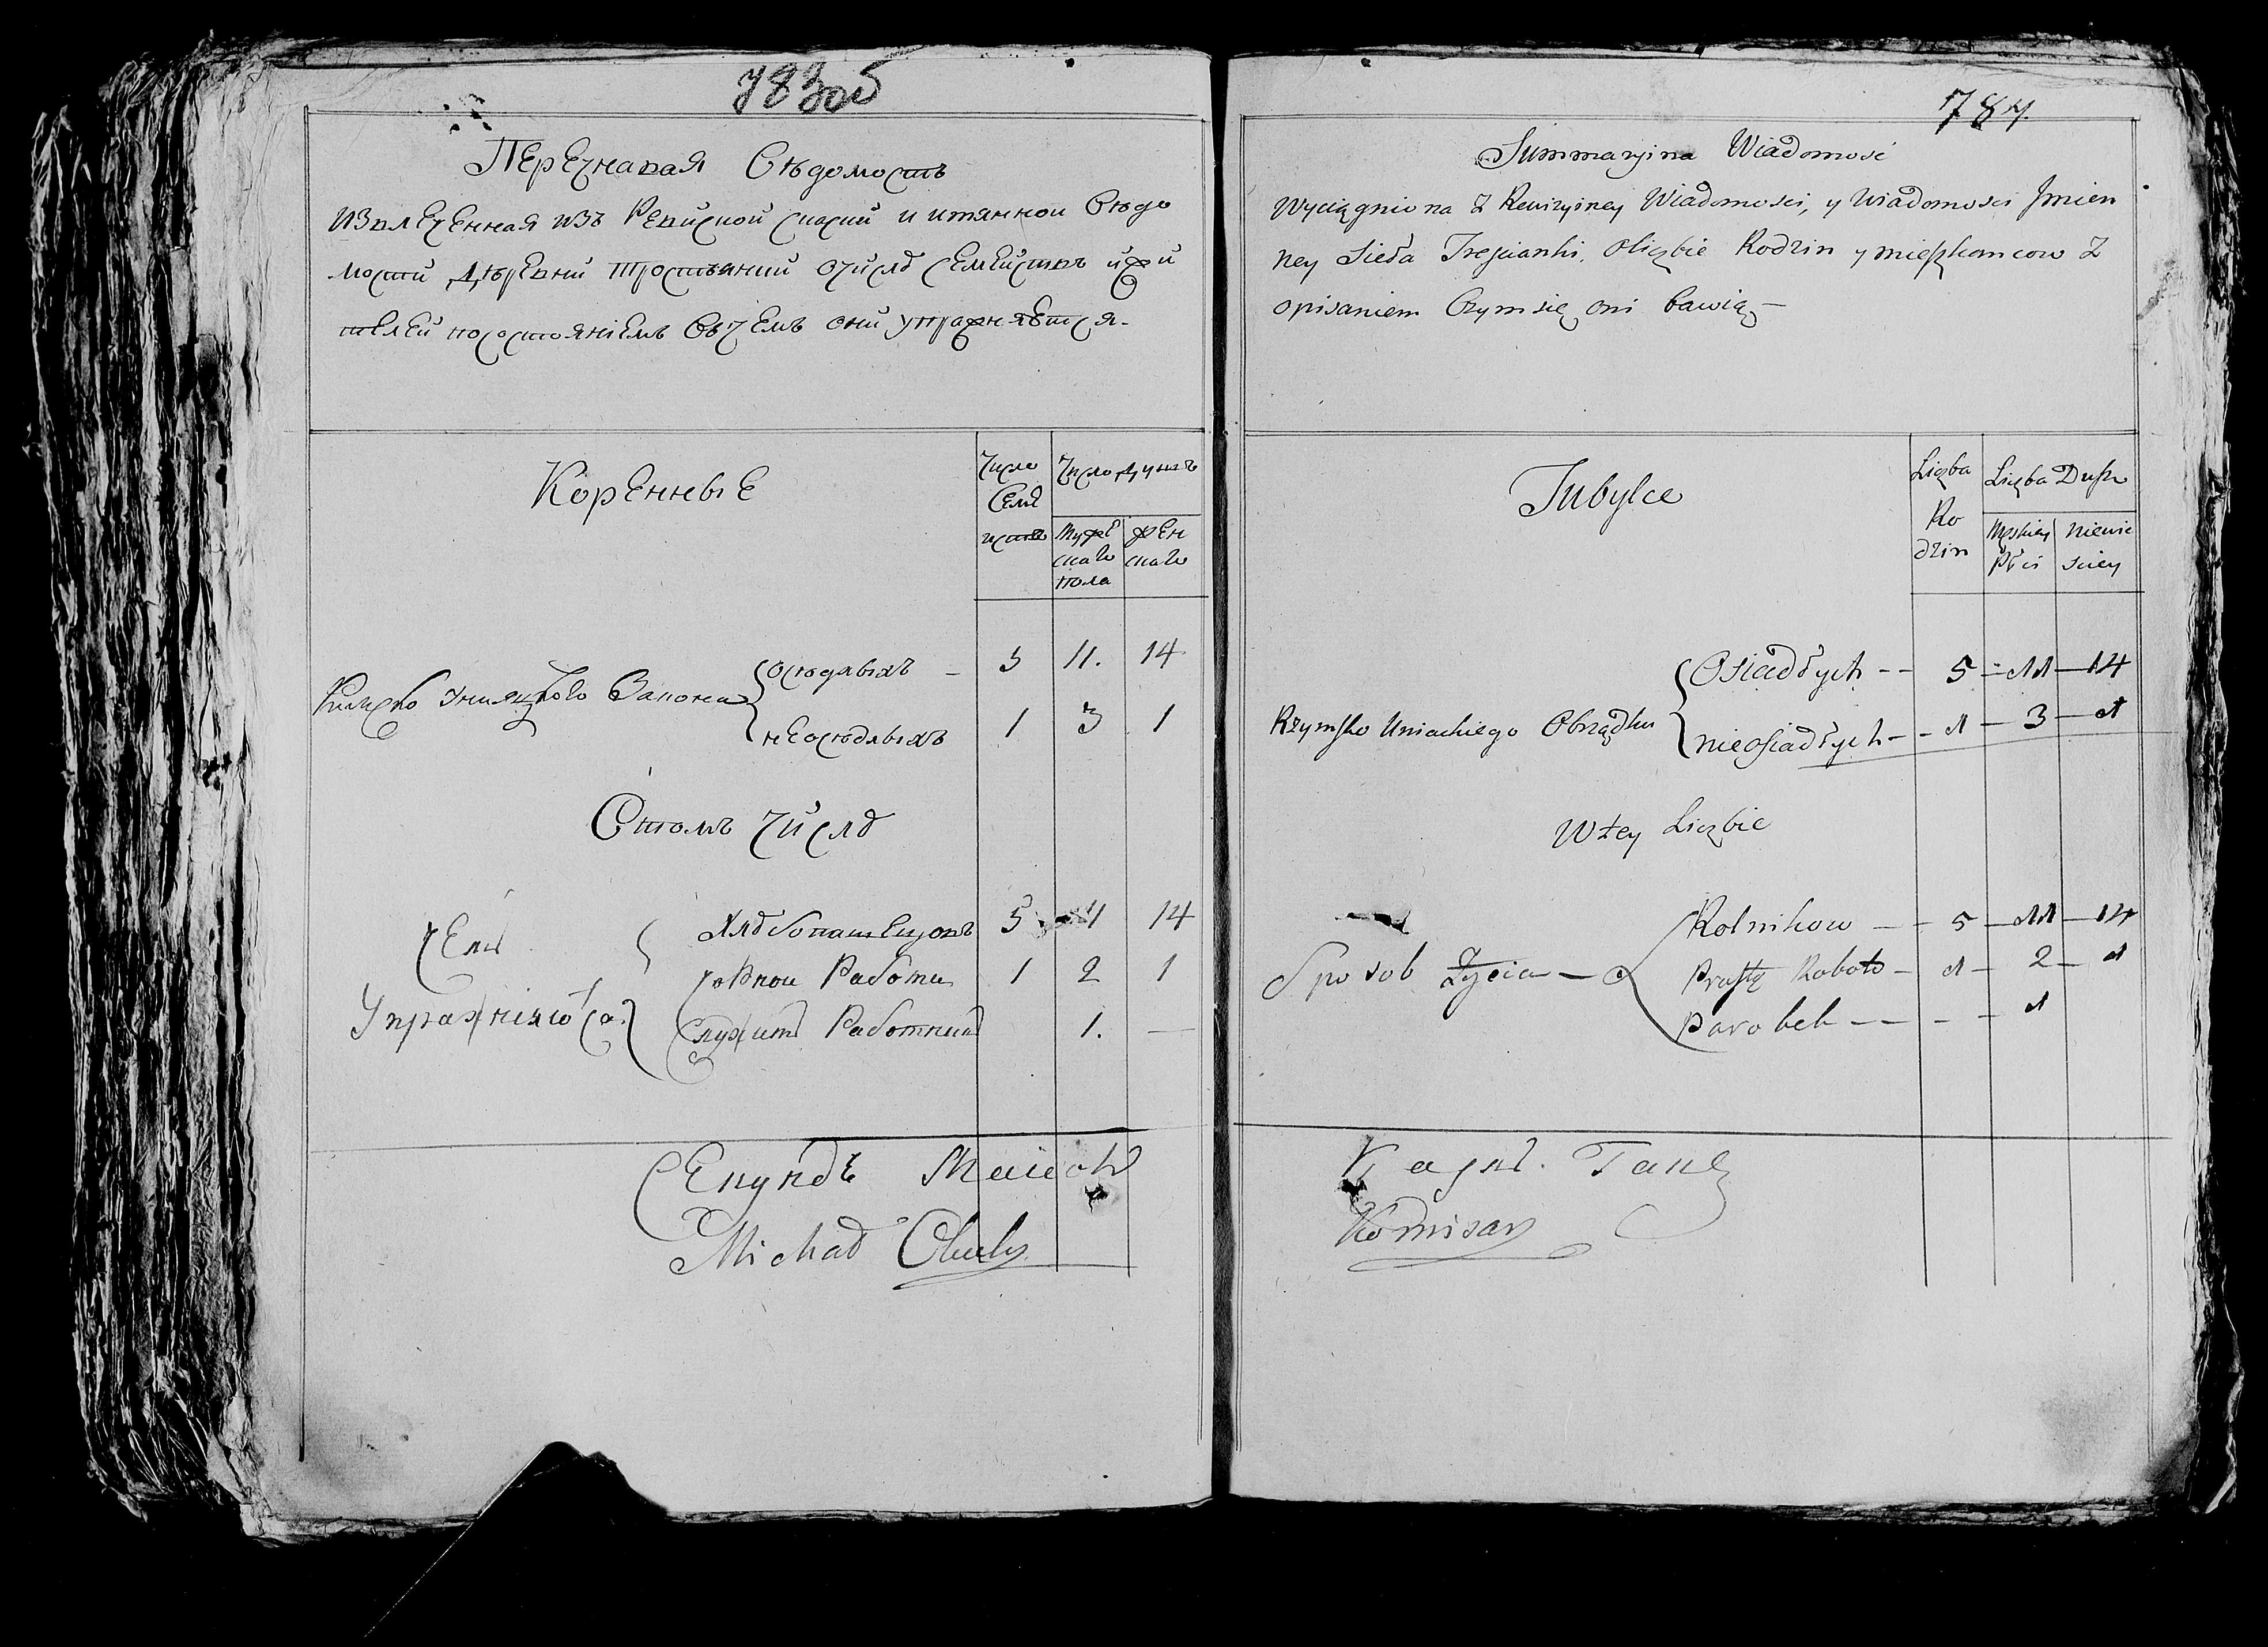 783об
Перечневая Вѣдомость
Извлеченная изъ Ревиской скаски и имянной Вѣдо
мости Дѣревни Тростянки о числѣ семействъ и жи
телей по состоянiемъ въ чемъ они упражняются.
Коренные
Число
Семѣ
иствъ
Число душъ
Мужес
скаго
пола
жен
скаго
Римско Униацкого Закона
осѣдлыхъ — 5 11. 14
неосѣдлыхъ 1 3 1
В томъ числѣ
Чемъ
Упражнiяются
Хлѣбопашенцовъ 5 11 14
чорной Работы 1 2 1
служитъ Работникъ 1. —
Michał
784.
Summaryina Wiadomość
Wyciągniona z Rewizyiney Wiadomości, y Wiadomości Jmien
ney Sioła Treścianki, o liczbie Rodzin y mieszkancow z
opisaniem Czym się oni bawią —
Tubylce
Liczba
Ro
dzin
Liczba Dusz
Męskiey
Płci
niewie
sciey
Rzymsko Uniackiego Obrządku
Osiadłych - - 5 - 11 - 14
nieosiadłych - - 1 - 3 - 1
W tey Liczbie
Sposob Życia —
Rolnikow - - 5 - 11 - 14
Prostą Roboto - 1 - 2 - 1
Parobek - - - - 1
Komisarz